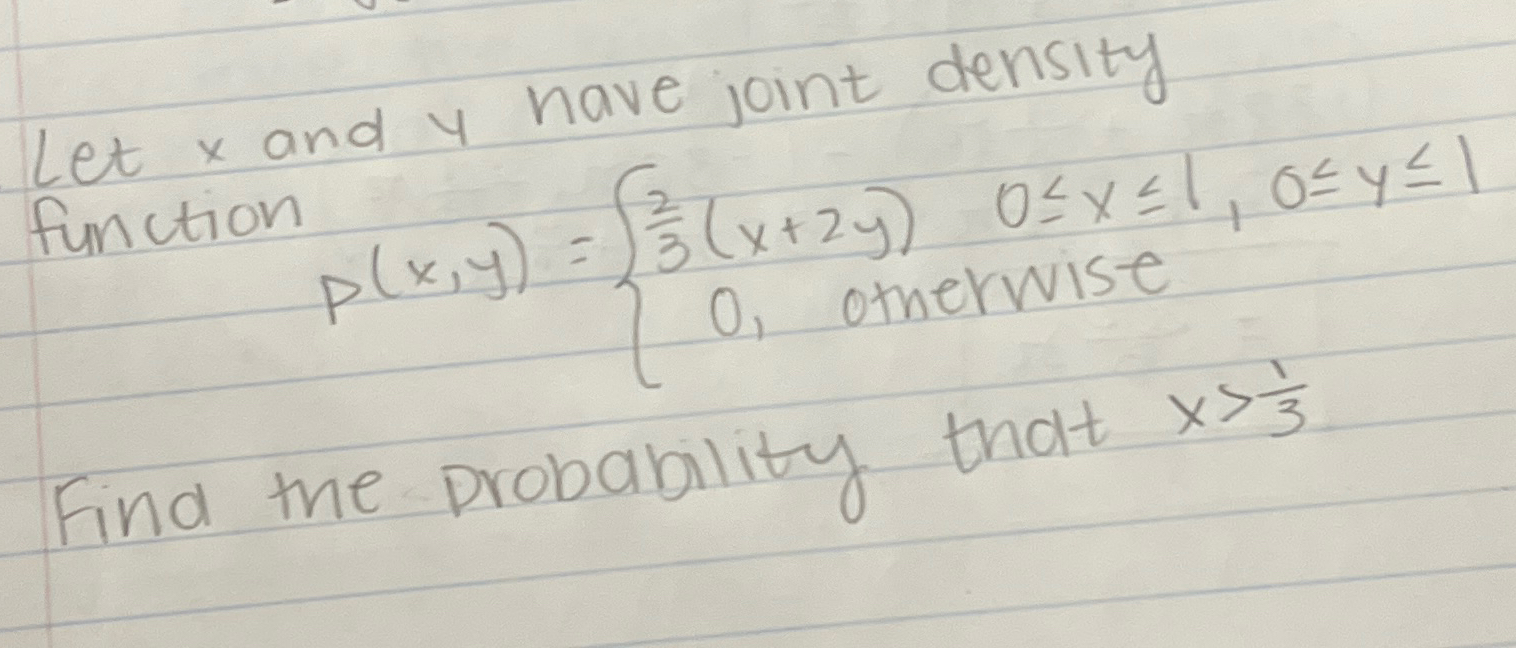 Let x and y have joint density
function
p(x,y) = { 2/3 (x+2y) 0≤x≤1, 0≤y≤1
0, otherwise
Find the probability that x > 1/3